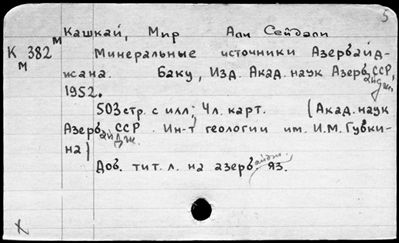 5
Кашкай, Мир Али Сейдали
К 382 м м
Минеральные источники Азербайд-
жана. Баку, Изд. Акад. наук Азерб. ССР,
айдж.
1952.
503 стр. с илл; 4 л. карт. (Акад. наук
Азерб. ССР. Ин-т геологии им. И.М. Губки-
айдж.
на)
Доб. тит. л. на азерб. яз.
айдж.